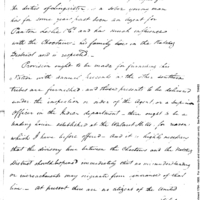 the duties of Interpreter – a sober young man
has for some years past been an Agent for
Panton Leslie & Co and has much influence
with the Choctaws, his family live in the Natchez
District and is respected –
Provision ought to be made for furnishing this
Nation with annual presents as the other southern
tribes are furnished and those presents to be delivered
under the inspection or order of the Agent or a superior
officer in the Indian department. there ought to be a
trading house established at the Walnut Hills for reasons
which I have before offered – and it is highly necessary
that the dividing line between the Choctaws and the Natchez
district should be fixed immediately that no misunderstanding
or encroachments may originate from ignorance of that
line – At present there are no citizens of the United